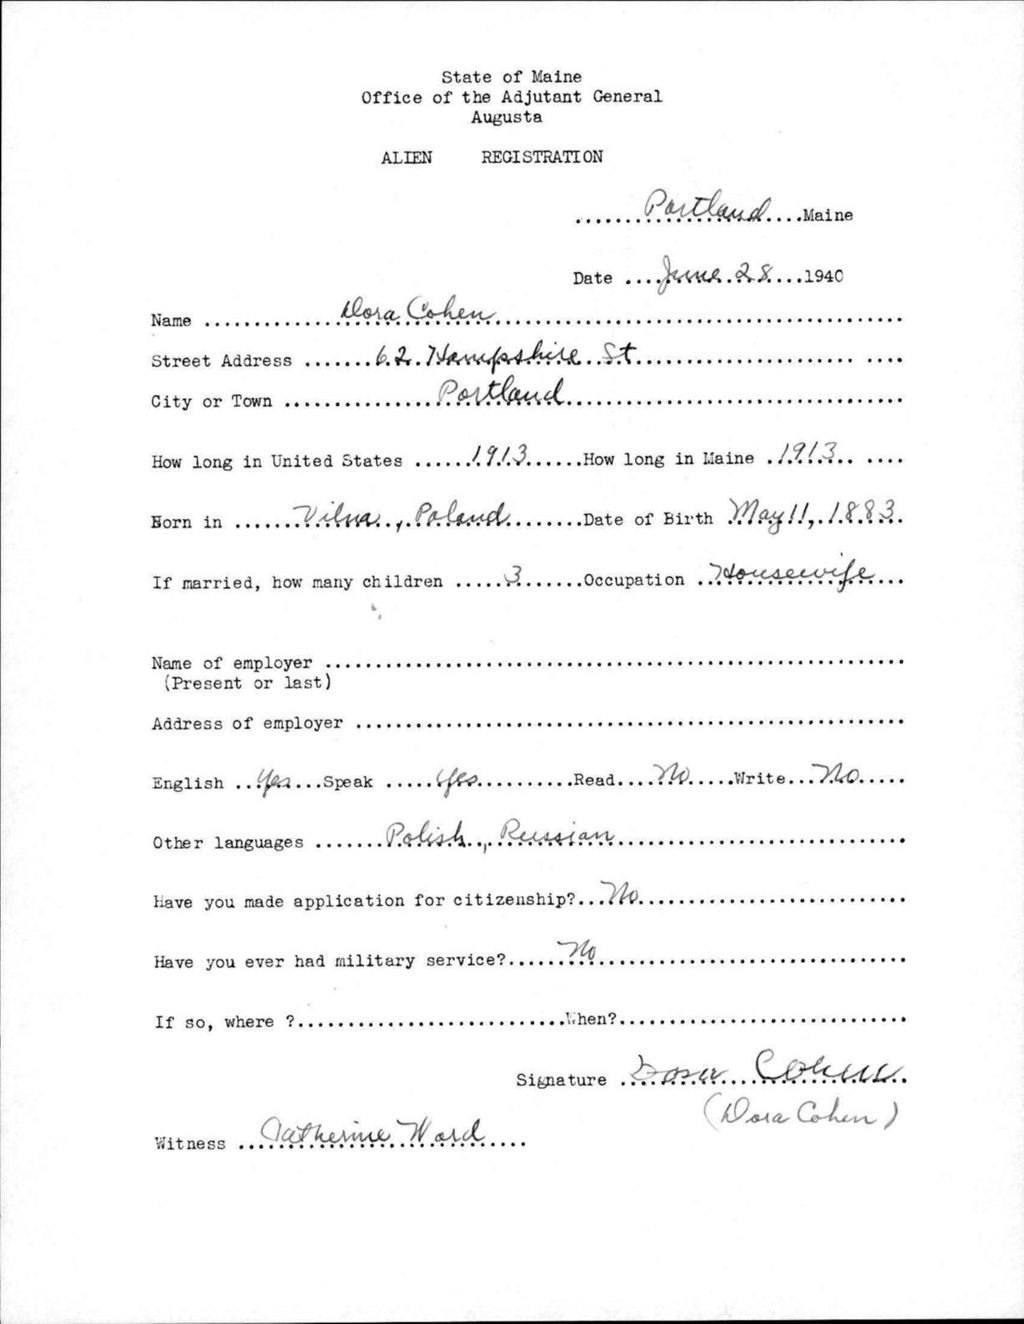 State of Maine
Office of the Adjutant General
Augusta
ALIEN REGISTRATION
.......Portland....Maine
Date ....June 28....1940
Name .............Dora Cohen..................................
Street Address .......62 Hampshire St........................ ....
City or Town ................Portland..................................
How long in United States ......1913......How long in Maine .1913.. ....
Born in .......Vilna, Poland........Date of Birth May 11, 1883.
If married, how many children .....3......Occupation ..Housewife...
Name of employer ..........................................................
(Present or last)
Address of employer .......................................................
English ..Yes...Speak .....Yes..........Read....No.....Write...No.....
Other languages .......Polish, Russian.............................
Have you made application for citizenship?...No...........................
Have you ever had military service?......No...............................
If so, where ?...........................When?.............................
Signature ..Dora Cohen.
(Dora Cohen)
Witness ..Catherine Ward....